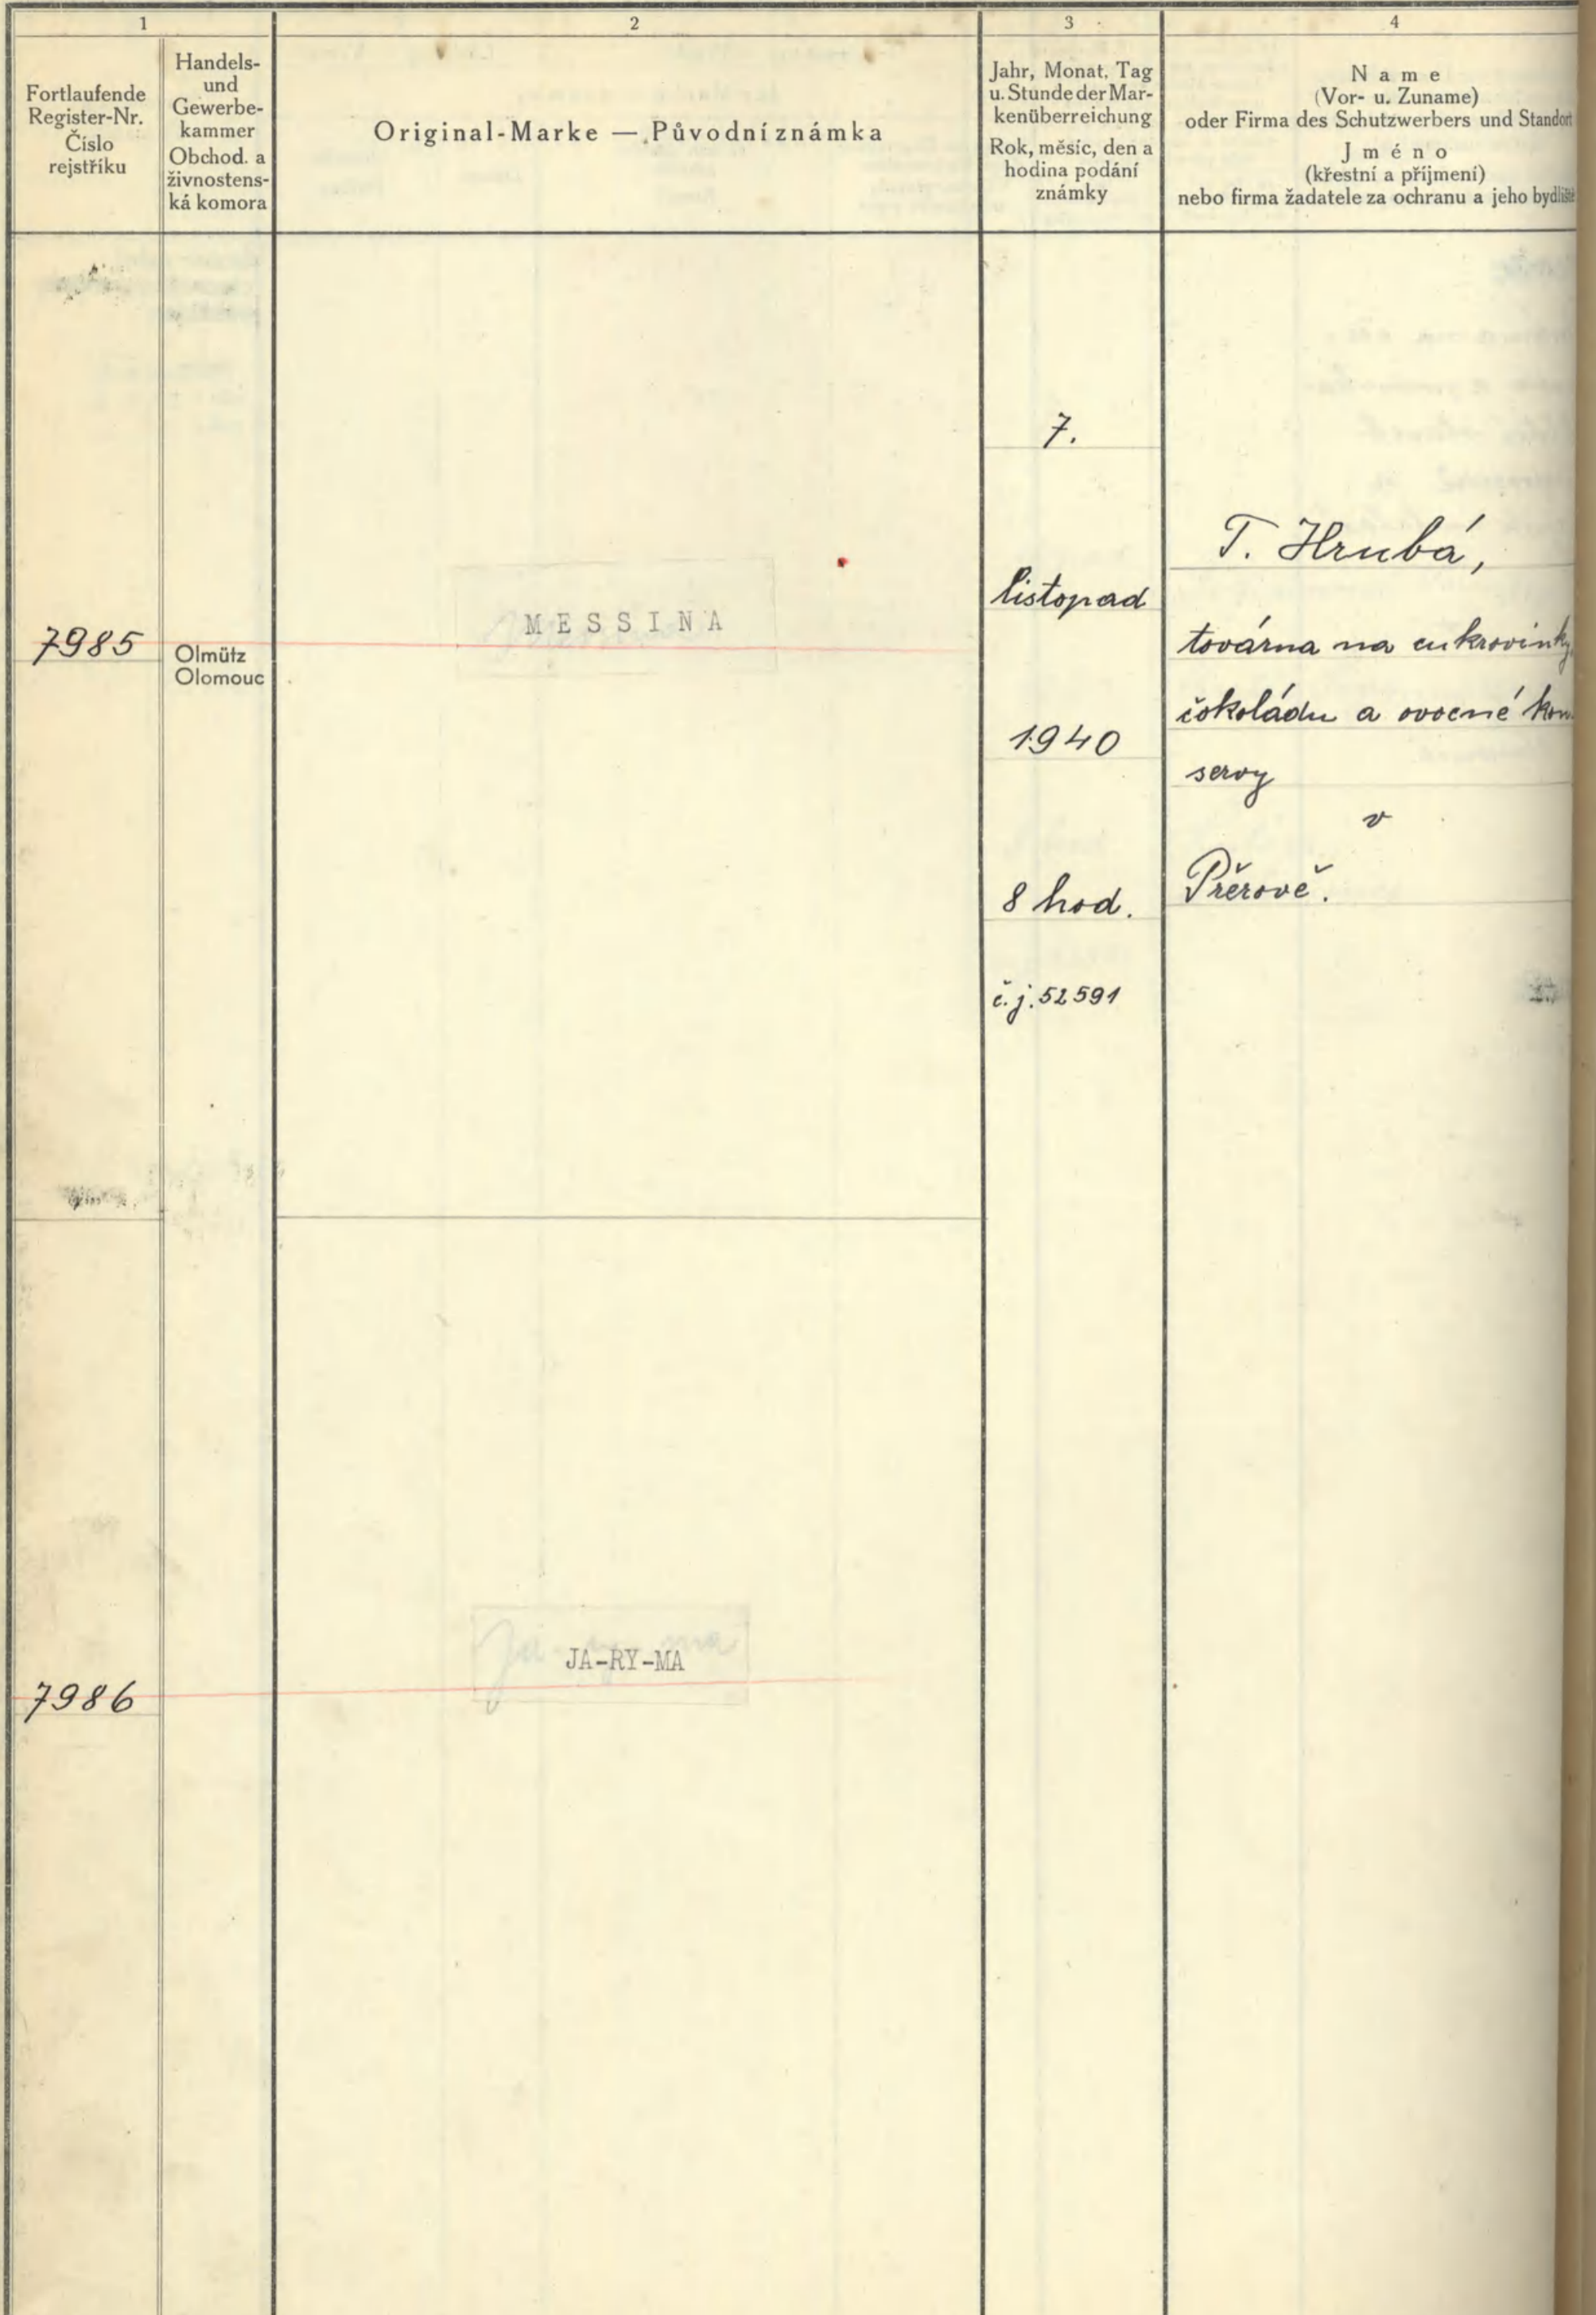 1
2
3
4
Fortlaufende
Register-Nr.
Číslo
rejstříku
Handels-
und
Gewerbe-
kammer
Obchod. a
živnostens-
ká komora
Original-Marke — Původní známka
Jahr, Monat, Tag
u. Stunde der Mar-
kenüberreichung
Rok, měsíc, den a
hodina podání
známky
Name
(Vor- u. Zuname)
oder Firma des Schutzwerbers und Standort
Jméno
(křestní a příjmení)
nebo firma žadatele za ochranu a jeho bydliště
7985
Olmütz
Olomouc
MESSINA
7.
listopad
1940
8 hod.
č.j. 52591
T. Hrubá,
továrna na cukrovinky
čokoládu a ovocné kon
servy
v
Přerově.
7986
JA-RY-MA